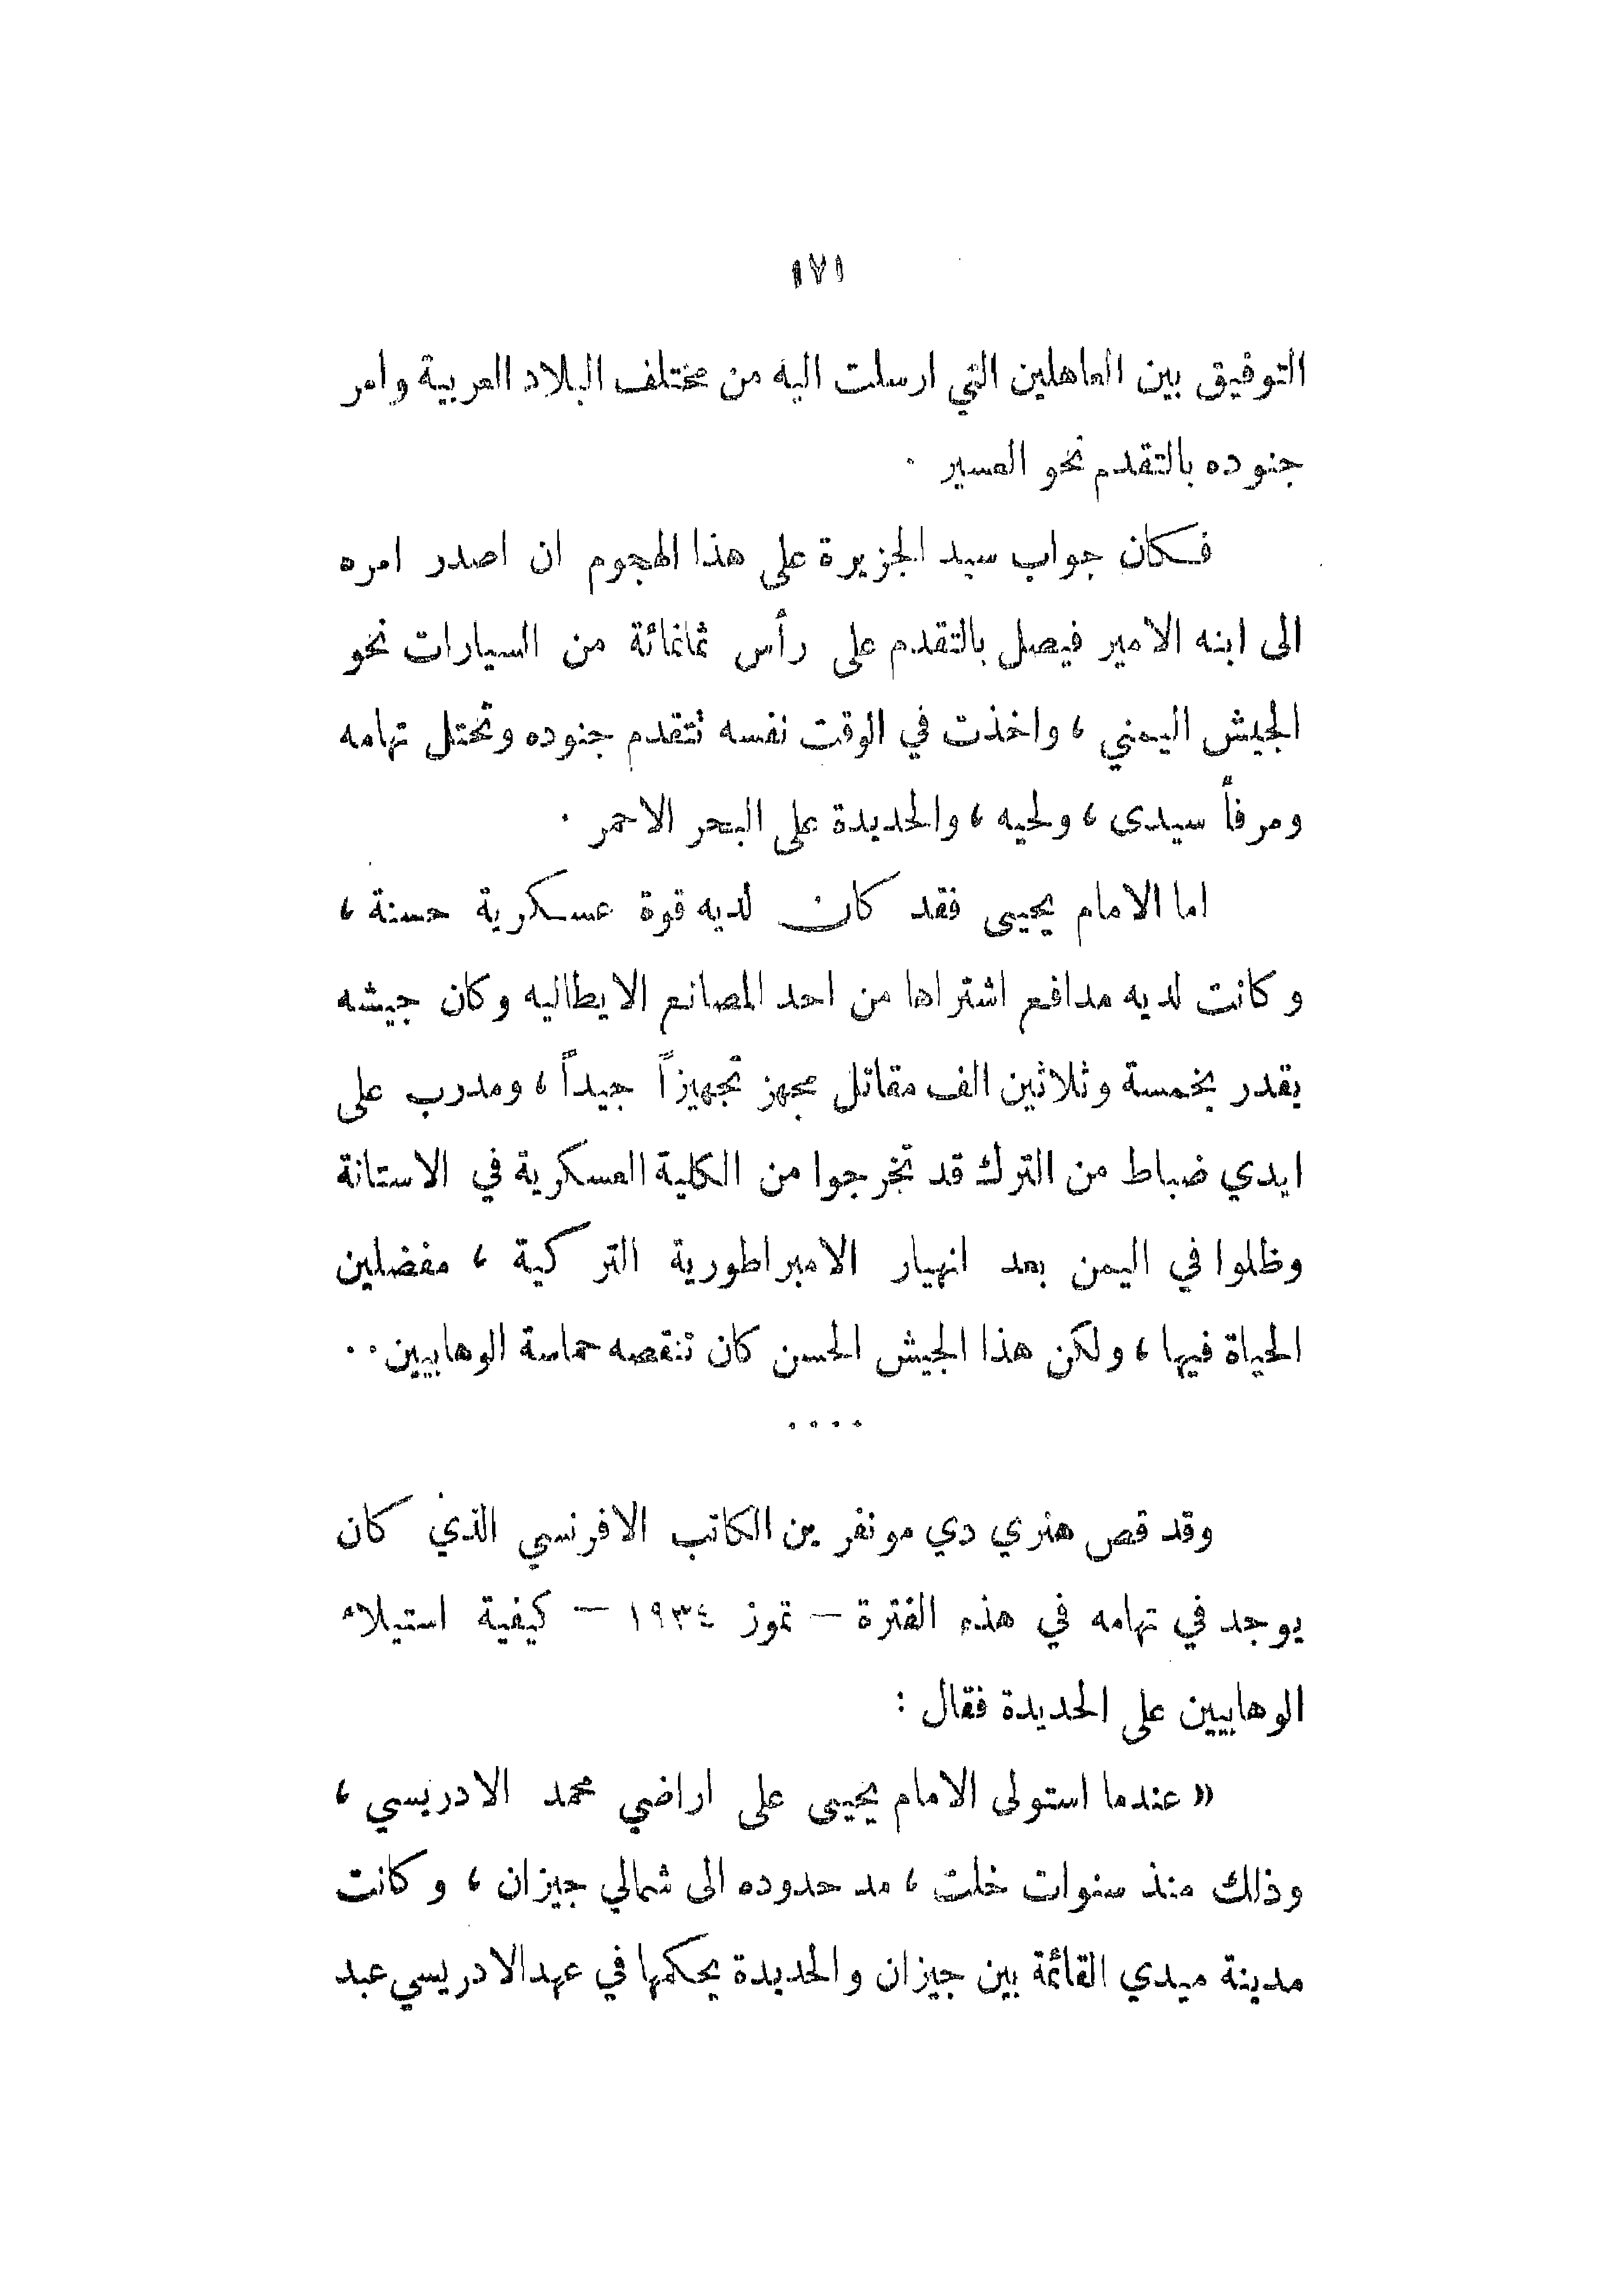 ١٧١
التوفيق بين العاهلين التي ارسلت اليه من مختلف البلاد العربية وامر
جنوده بالتقدم نحو العسير .
فكان جواب سيد الجزيرة على هذا الهجوم ان اصدر امره
الى ابنه الامير فيصل بالتقدم على رأس ثمانمائة من السيارات نحو
الجيش اليمني ، واخذت في الوقت نفسه تتقدم جنوده وتحتل تهامه
ومرفأ سيدى ، ولحيه ، والحديدة على البحر الاحمر .
اما الامام يحيى فقد كان لديه قوة عسكرية حسنة ،
وكانت لديه مدافع اشتراها من احد المصانع الايطاليه وكان جيشه
يقدر بخمسة وثلاثين الف مقاتل مجهز تجهيزاً جيداً ، ومدرب على
ايدي ضباط من الترك قد تخرجوا من الكلية العسكرية في الاستانة
وظلوا في اليمن بعد انهيار الامبراطورية التركية ، مفضلين
الحياة فيها ، ولكن هذا الجيش الحسن كان تنقصه حماسة الوهابيين . .
. . . .
وقد قص هنري دي مونفرين الكاتب الافرنسي الذي كان
يوجد في تهامه في هذه الفترة – تموز ١٩٣٤ – كيفية استيلاء
الوهابيين على الحديدة فقال :
« عندما استولى الامام يحيى على اراضي محمد الادريسي ،
وذلك منذ سنوات خلت ، مد حدوده الى شمالي جيزان ، وكانت
مدينة ميدي القائمة بين جيزان والحديدة يحكمها في عهد الادريسي عبد